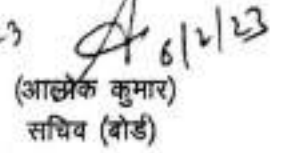 6/2/23
(आलोक कुमार)
सचिव (बोर्ड)